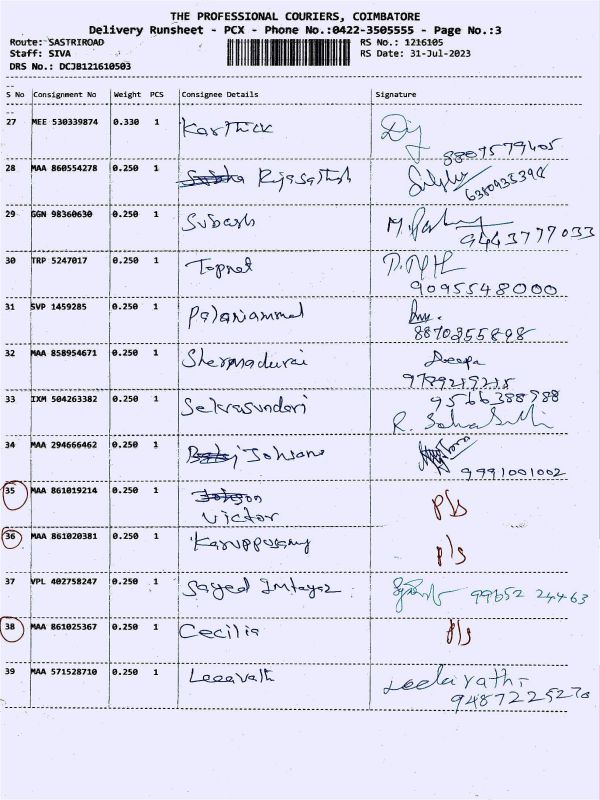 THE PROFESSIONAL COURIERS, COIMBATORE
Delivery Runsheet - PCX - Phone No.:0422-3505555 - Page No.:3
Route: SASTRIROAD RS No.: 1216105
Staff: SIVA RS Date: 31-Jul-2023
DRS No.: DCJB121610503
S No Consignment No Weight PCS Consignee Details Signature
27 MEE 530339874 0.330 1 Karthick
8807579405
28 MAA 860554278 0.250 1
29 GGN 98360630 0.250 1 Subash
9443777033
30 TRP 5247017 0.250 1 Topnet
9095548000
31 SVP 1459285 0.250 1 Palaniammal
8870355898
32 MAA 858954671 0.250 1 Shermadurai Deepa
9789219215
33 IXM 504263382 0.250 1 9566388988
34 MAA 294666462 0.250 1
9991001002
35 MAA 861019214 0.250 1 P/s
Victor
36 MAA 861020381 0.250 1 Karuppusamy P/s
37 VPL 402758247 0.250 1 Sayed Imtayaz 99652 24463
38 MAA 861025367 0.250 1 Cecilia P/s
39 MAA 571528710 0.250 1 Leelavathi
9487225270